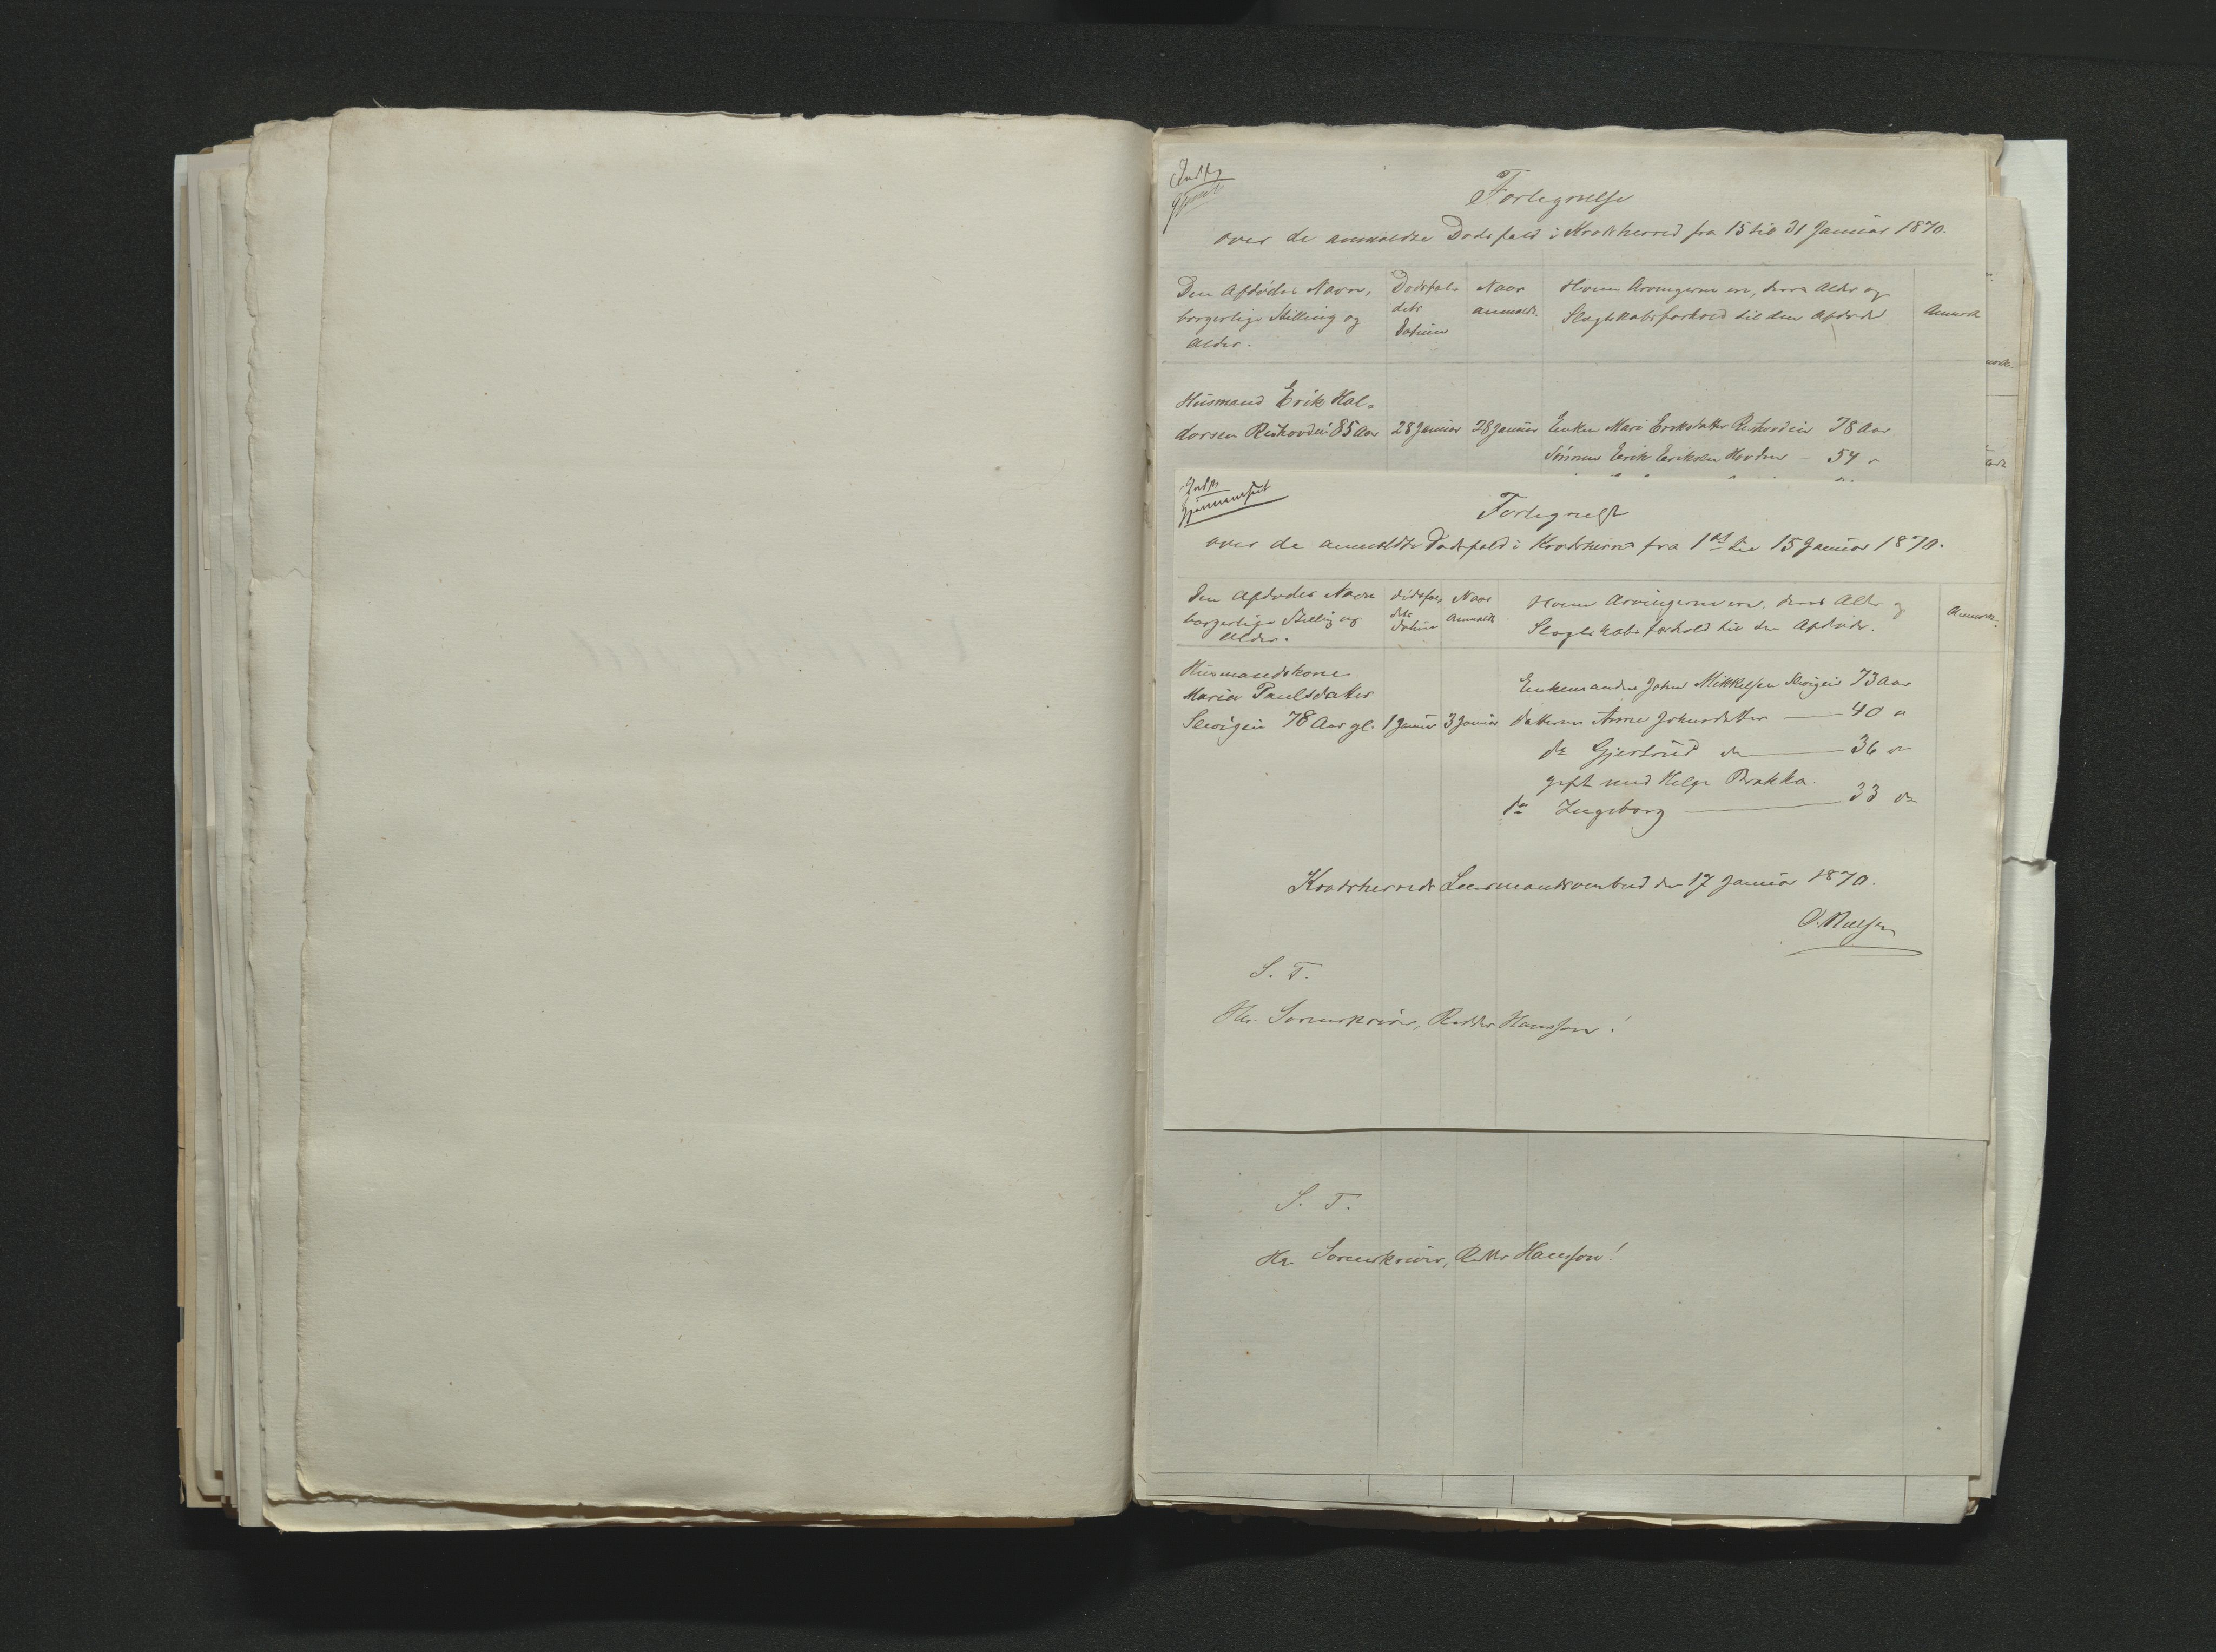 Indf
Fortegnelse
over de anmeldte Dødsfald i Krødsherred fra 15 til 31 Januar 1870.
Den Afdødes Navn, borgerlige Stilling og Alder.
Dødsfaldets Datum
Naar anmeldt
Hvem Arvingerne ere, deres Alder og Slægtskabsforhold til den Afdøde
Anmærk
Husmand Erik Hal=
dorsen 85 Aar 28 Januar 28 Januar Enken Mari Eriksdatter 78 Aar
Sønnen Erik Eriksen 54 "
Indf
Fortegnelse
over de anmeldte Dødsfald i Krødsherred fra 1ste til 15 Januar 1870.
Den Afdødes Navn borgerlige Stilling og Alder.
Dødsfaldets Datum
Naar Anmeldt
Hvem Arvingerne ere, deres Alder og Slægtskabsforhold til den Afdøde.
Anmærk.
Husmandskone
Maria Paulsdatter Enkemanden John Mikkelsen 73 Aar
78 Aar gl. 1 Januar 3 Januar Datteren Anne Johnsdatter 40 "
do Gjertrud do 36 "
gift med Helge Brække
do Ingeborg 33 do
Krødsherreds Lensmandsombud den 17 Januar 1870.
O. Nielsen
S. T.
Hr. Sorenskriver, Ridder Hansson!
S. T.
Hr. Sorenskriver, Ridder Hansson!